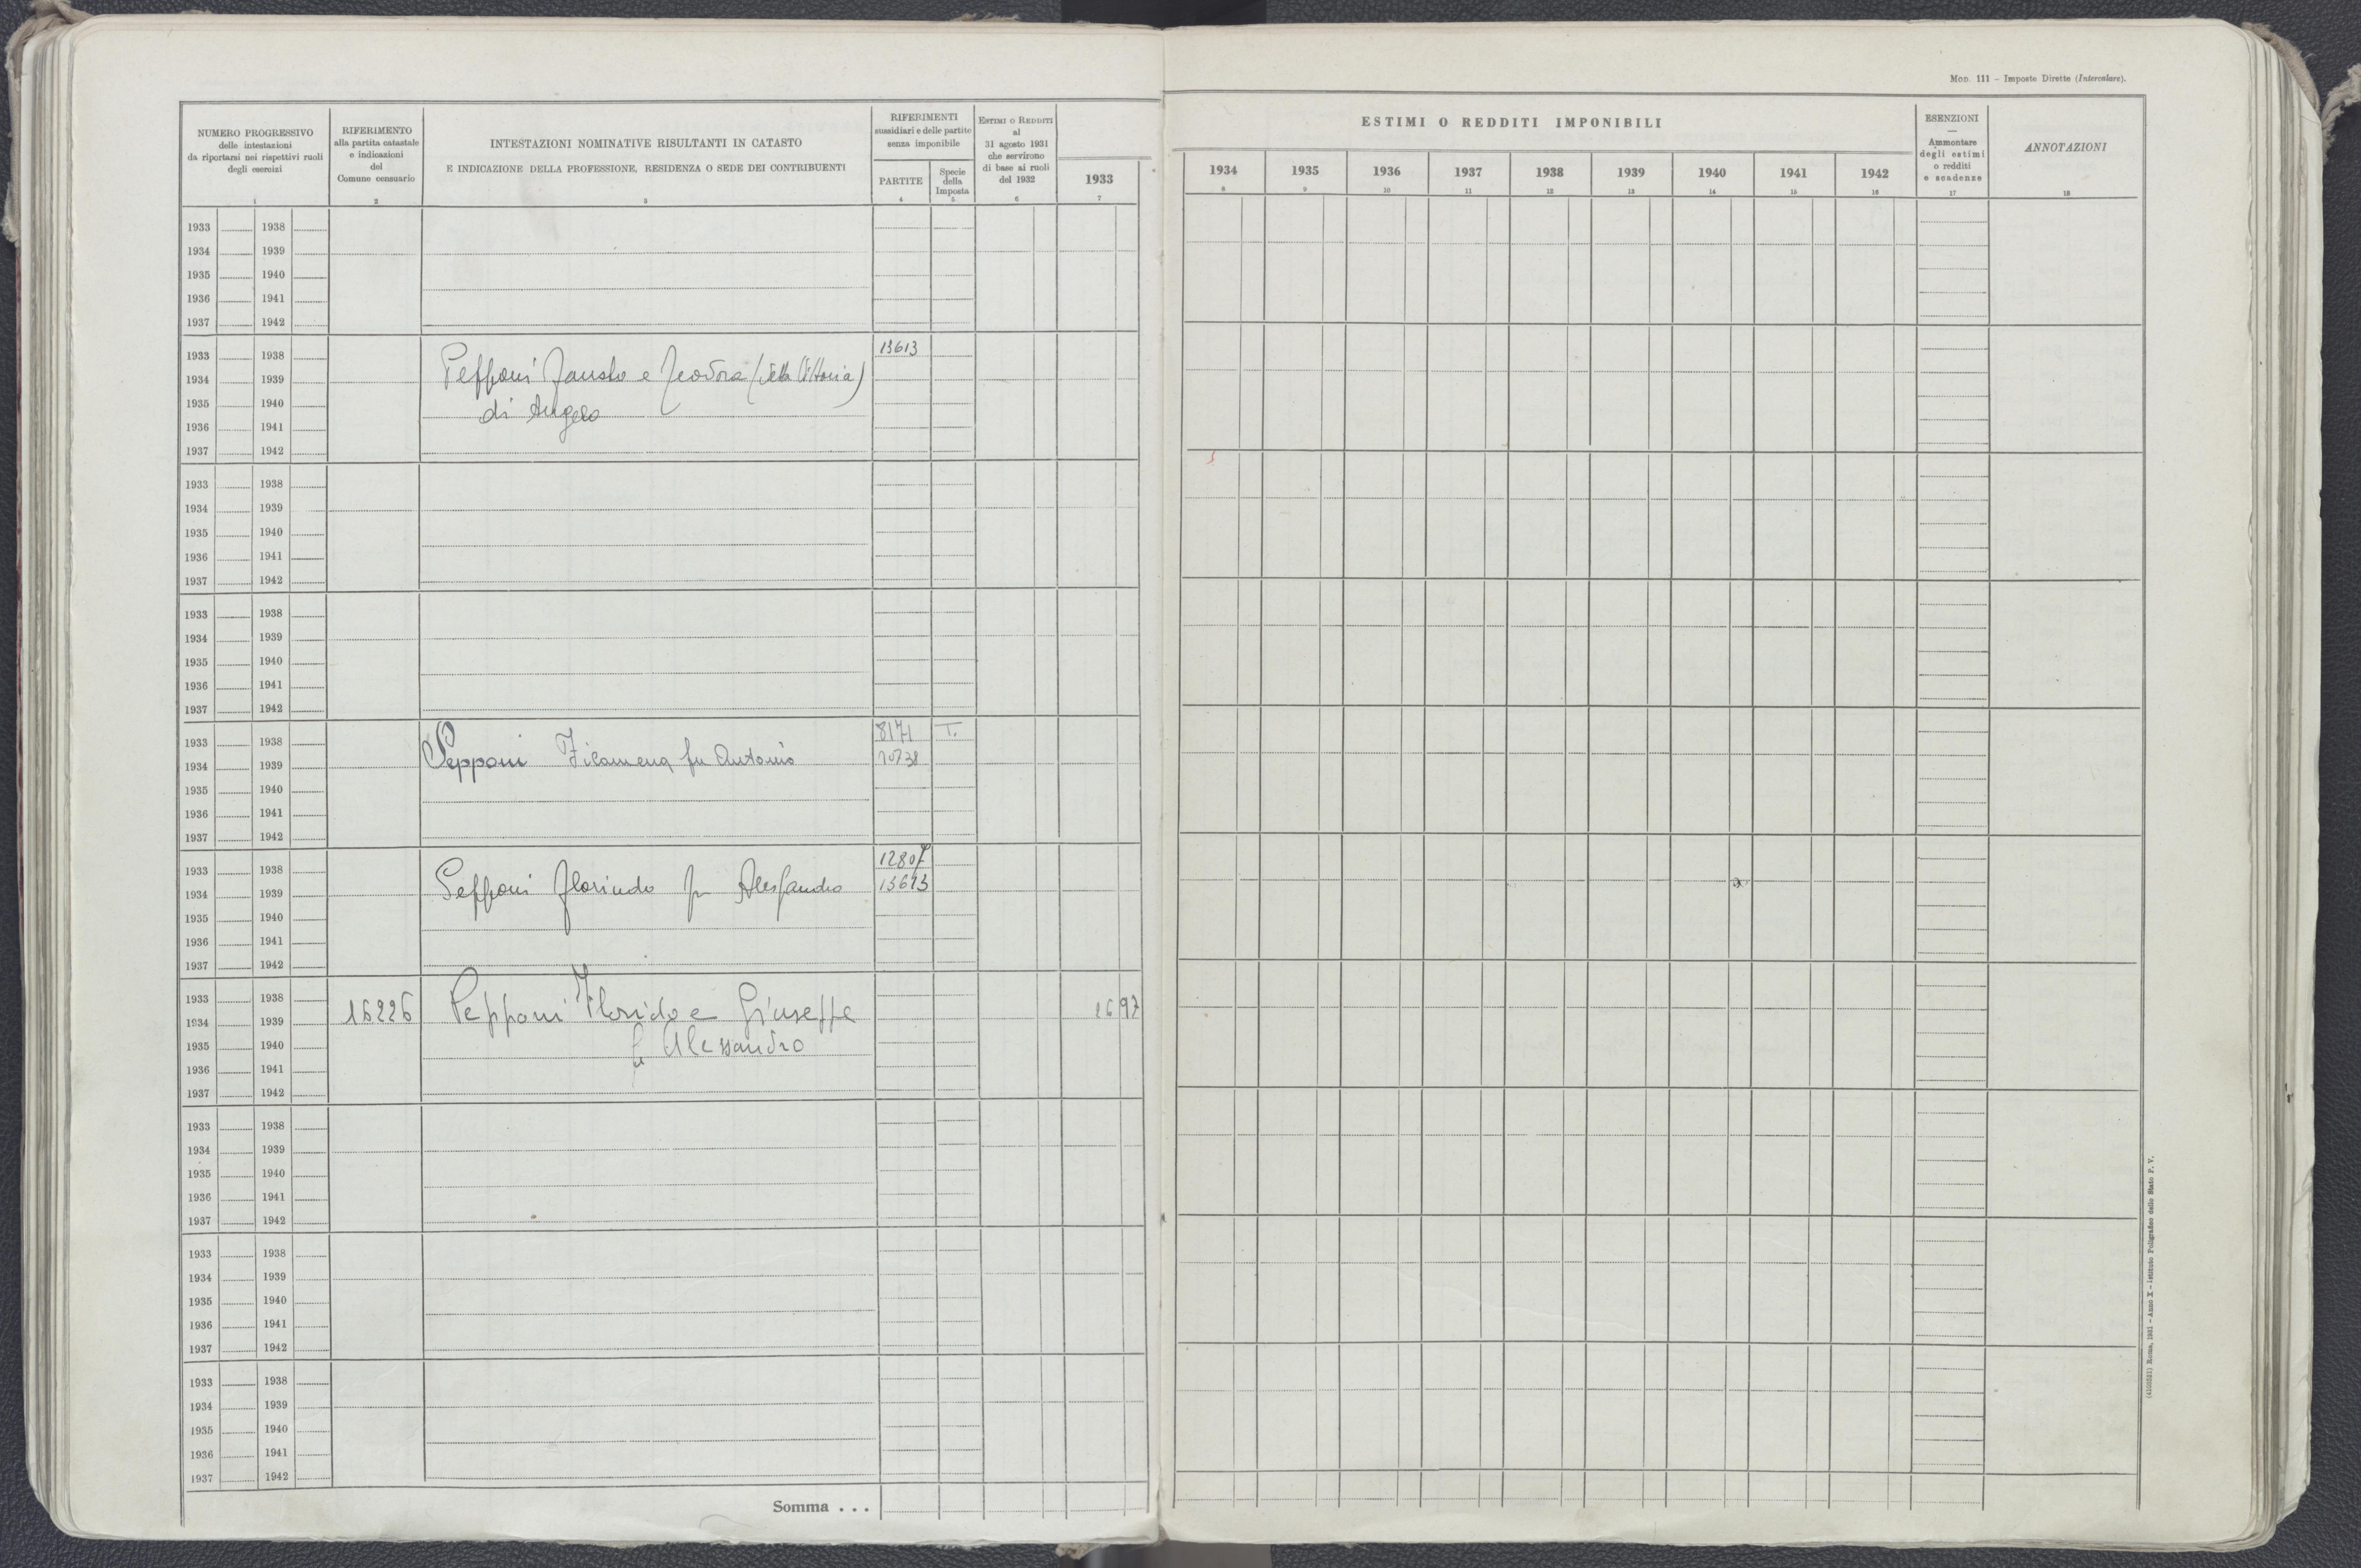 Mod. 111 – Imposte Dirette (Intercalare).
NUMERO PROGRESSIVO
delle intestazioni
da riportarsi nei rispettivi ruoli
degli esercizi
1
RIFERIMENTO
alla partita catastale
e indicazioni
del
Comune censuario
2
INTESTAZIONI NOMINATIVE RISULTANTI IN CATASTO
E INDICAZIONE DELLA PROFESSIONE, RESIDENZA O SEDE DEI CONTRIBUENTI
3
RIFERIMENTI
sussidiari e delle partite
senza imponibile
PARTITE
4
Specie
della
Imposta
5
Estimi o Redditi
al
31 agosto 1931
che servirono
di base ai ruoli
del 1932
6
1933
7
ESTIMI O REDDITI IMPONIBILI
1934 1935 1936 1937 1938 1939 1940 1941 1942
8 9 10 11 12 13 14 15 16
ESENZIONI
—
Ammontare
degli estimi
o redditi
e scadenze
17
ANNOTAZIONI
18
1933 1938
1934 1939
1935 1940
1936 1941
1937 1942
1933 1938 13613
1934 1939 Pepponi Fausto e Teodora (detta Vittoria)
1935 1940 di Angelo
1936 1941
1937 1942
1933 1938
1934 1939
1935 1940
1936 1941
1937 1942
1933 1938
1934 1939
1935 1940
1936 1941
1937 1942
1933 1938 8171 T.
1934 1939 Pepponi Filomena fu Antonio
1935 1940
1936 1941
1937 1942
1933 1938 12807
1934 1939 Pepponi Florindo fu Alessandro 13613
1935 1940
1936 1941
1937 1942
1933 1938
1934 1939 16226 Pepponi Florido e Giuseppe 16 97
1935 1940 fu Alessandro
1936 1941
1937 1942
1933 1938
1934 1939
1935 1940
1936 1941
1937 1942
1933 1938
1934 1939
1935 1940
1936 1941
1937 1942
1933 1938
1934 1939
1935 1940
1936 1941
1937 1942
Somma . . .
Roma, 1931 – Anno X – Istituto Poligrafico dello Stato P. V.